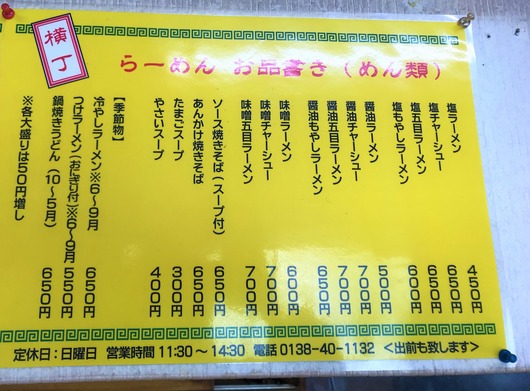 横丁
らーめん お品書き（めん類）
塩ラーメン 450円
塩チャーシュー 650円
塩五目ラーメン 650円
塩もやしラーメン 600円
醤油ラーメン 500円
醤油チャーシュー 700円
醤油五目ラーメン 700円
醤油もやしラーメン 650円
味噌ラーメン 600円
味噌チャーシュー 700円
味噌五目ラーメン 700円
ソース焼きそば（スープ付） 650円
あんかけ焼きそば 650円
たまごスープ 300円
やさいスープ 400円
【季節物】
冷やしラーメン※6～9月 650円
つけラーメン（おにぎり付）※6～9月 550円
鍋焼きうどん（10～5月） 650円
※各大盛りは50円増し
定休日：日曜日 営業時間 11:30～14:30 電話 0138-40-1132 <出前も致します>